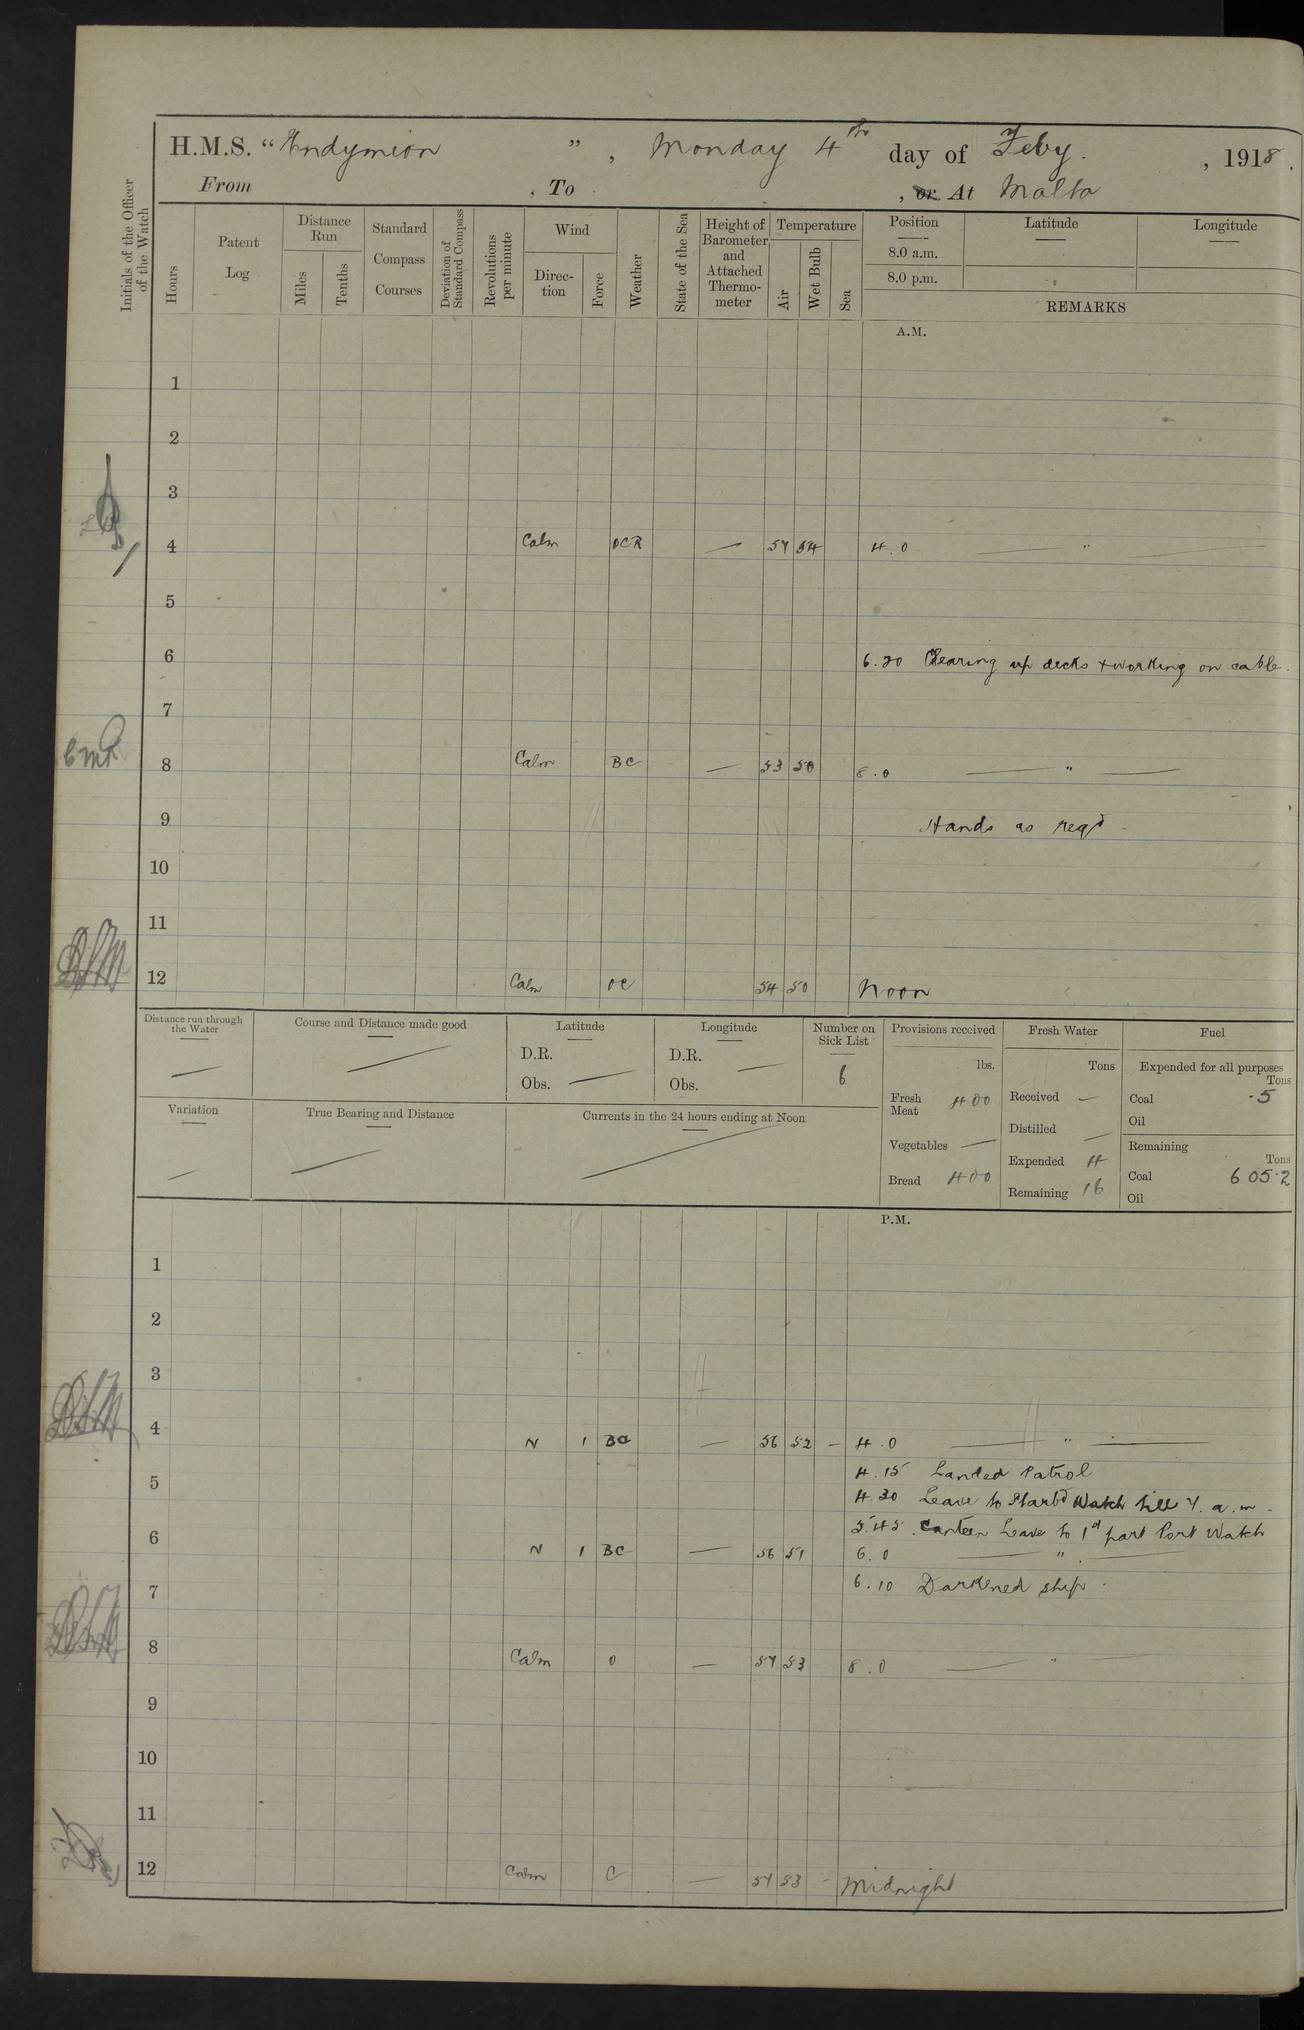 H.M.S. “ Endymion ” , Monday 4th day of Feby. , 1918 .
From , To , or At Malta
Initials of the Officer of the Watch
Hours
Patent Log
Distance Run
Miles
Tenths
Standard Compass Courses
Deviation of Standard Compass
Revolutions per minute
Wind
Direction
Force
Weather
State of the Sea
Height of Barometer and Attached Thermometer
Temperature
Air
Wet Bulb
Sea
Position
8.0 a.m.
8.0 p.m.
Latitude
Longitude
REMARKS
A.M.
1
2
3
4 Calm OCR — 57 54 4.0 — " —
5
6 6.20 Clearing up decks + working on cable.
7
8 Calm BC — 53 50 8.0 — " —
9 Hands as reqd.
10
11
12 Calm OC 54 50 Noon
Distance run through the Water —
Course and Distance made good —
Latitude
D.R.
Obs. —
Longitude
D.R. —
Obs.
Number on Sick List
6
Provisions received
lbs.
Fresh Meat 400
Vegetables —
Bread 400
Fresh Water
Tons
Received —
Distilled —
Expended 4
Remaining 16
Fuel
Expended for all purposes
Tons
Coal .5
Oil
Remaining
Tons
Coal 605.2
Oil
Variation —
True Bearing and Distance —
Currents in the 24 hours ending at Noon —
P.M.
1
2
3
4 N 1 BC — 56 52 — 4.0 — " —
4.15 Landed Patrol
5
4.30 Leave to Starbd Watch till 7. a.m.
5.45. Canteen Leave to 1st part Port Watch
6 N 1 BC — 56 51 6.0 — " —
6.10 Darkened ship.
7
8 Calm O — 57 53 8.0 — " —
9
10
11
12 Calm C — 57 53 - Midnight